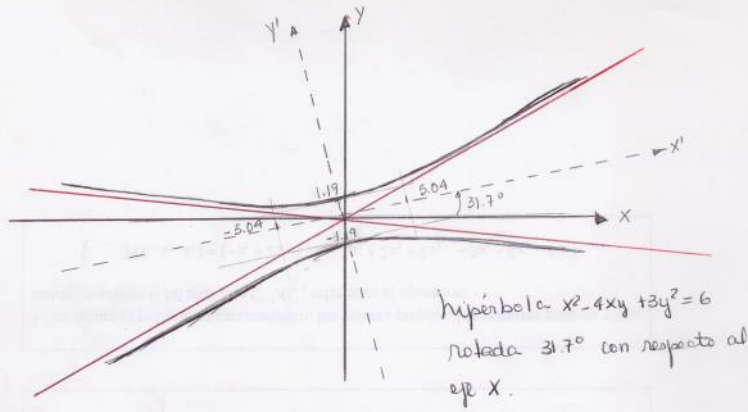 y'
y
x'
1.19
5.04
31.7°
x
-5.04
-1.19
hipérbola x²-4xy+3y²=6
rotada 31.7° con respecto al
eje X.